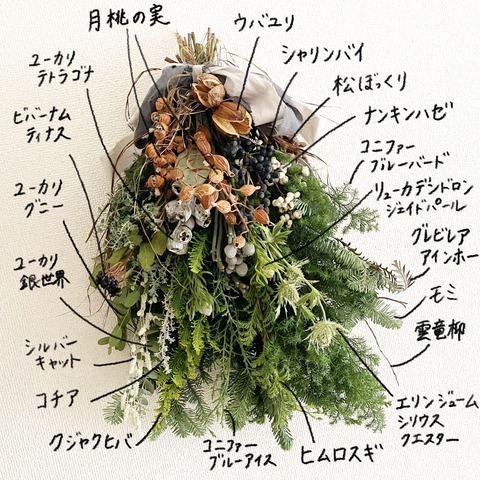 月桃の実
ウバユリ
シャリンバイ
松ぼっくり
ナンキンハゼ
コニファー
ブルーバード
リューカデンドロン
ジェイドパール
グレビレア
アインホー
モミ
雲竜柳
エリンジューム
シリウス
クエスター
ヒムロスギ
コニファー
ブルーアイス
クジャクヒバ
コチア
シルバー
キャット
ユーカリ
銀世界
ユーカリ
グニー
ビバーナム
ティナス
ユーカリ
テトラゴナ